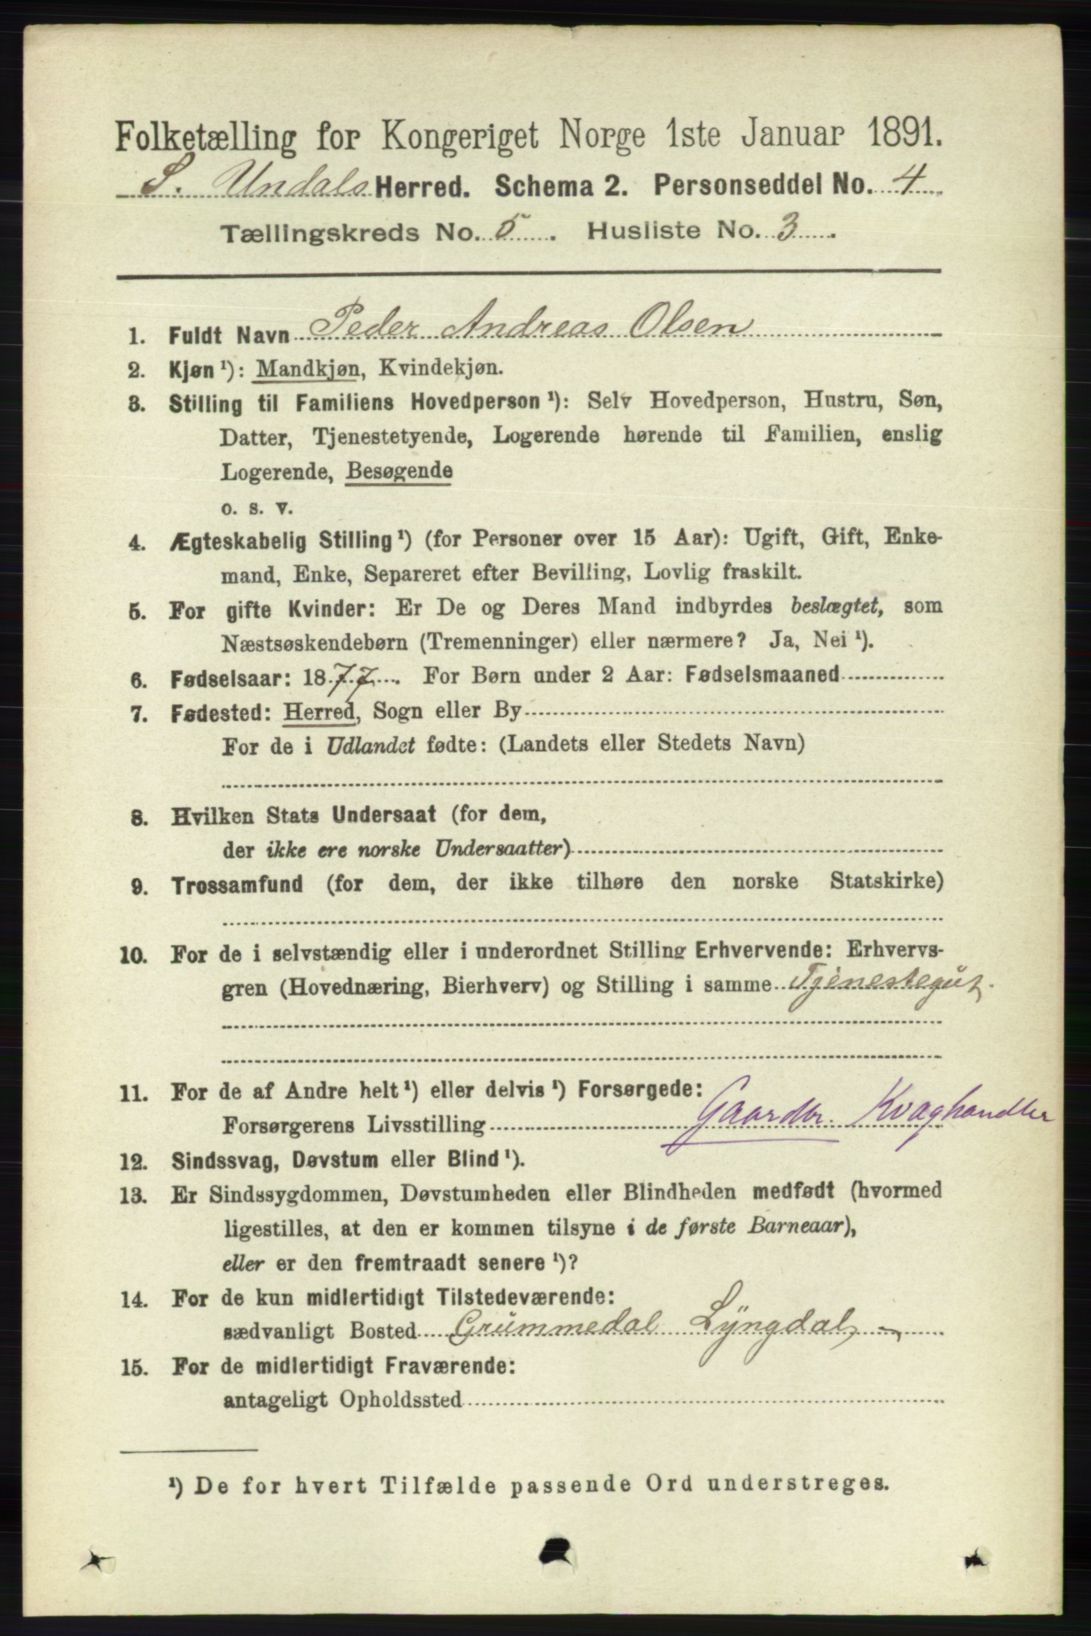 Folketælling for Kongeriget Norge 1ste Januar 1891.
S. Undals Herred. Schema 2. Personseddel No. 4
Tællingskreds No. 5. Husliste No. 3.
1. Fuldt Navn Peder Andreas Olsen
2. Kjøn ¹): Mandkjøn, Kvindekjøn.
3. Stilling til Familiens Hovedperson ¹): Selv Hovedperson, Hustru, Søn,
Datter, Tjenestetyende, Logerende hørende til Familien, enslig
Logerende, Besøgende
o. s. v.
4. Ægteskabelig Stilling ¹) (for Personer over 15 Aar): Ugift, Gift, Enke-
mand, Enke, Separeret efter Bevilling, Lovlig fraskilt.
5. For gifte Kvinder: Er De og Deres Mand indbyrdes beslægtet, som
Næstsøskendebørn (Tremenninger) eller nærmere? Ja, Nei ¹).
6. Fødselsaar: 1877. For Børn under 2 Aar: Fødselsmaaned
7. Fødested: Herred, Sogn eller By
For de i Udlandet fødte: (Landets eller Stedets Navn)
8. Hvilken Stats Undersaat (for dem,
der ikke ere norske Undersaatter)
9. Trossamfund (for dem, der ikke tilhøre den norske Statskirke)
10. For de i selvstændig eller i underordnet Stilling Erhvervende: Erhvervs-
gren (Hovednæring, Bierhverv) og Stilling i samme Tjenestegut.
11. For de af Andre helt ¹) eller delvis ¹) Forsørgede:
Forsørgerens Livsstilling Gaardbr. Kvaghandler
12. Sindssvag, Døvstum eller Blind ¹).
13. Er Sindssygdommen, Døvstumheden eller Blindheden medfødt (hvormed
ligestilles, at den er kommen tilsyne i de første Barneaar),
eller er den fremtraadt senere ¹)?
14. For de kun midlertidigt Tilstedeværende:
sædvanligt Bosted Grummedal Lyngdal
15. For de midlertidigt Fraværende:
antageligt Opholdssted
¹) De for hvert Tilfælde passende Ord understreges.